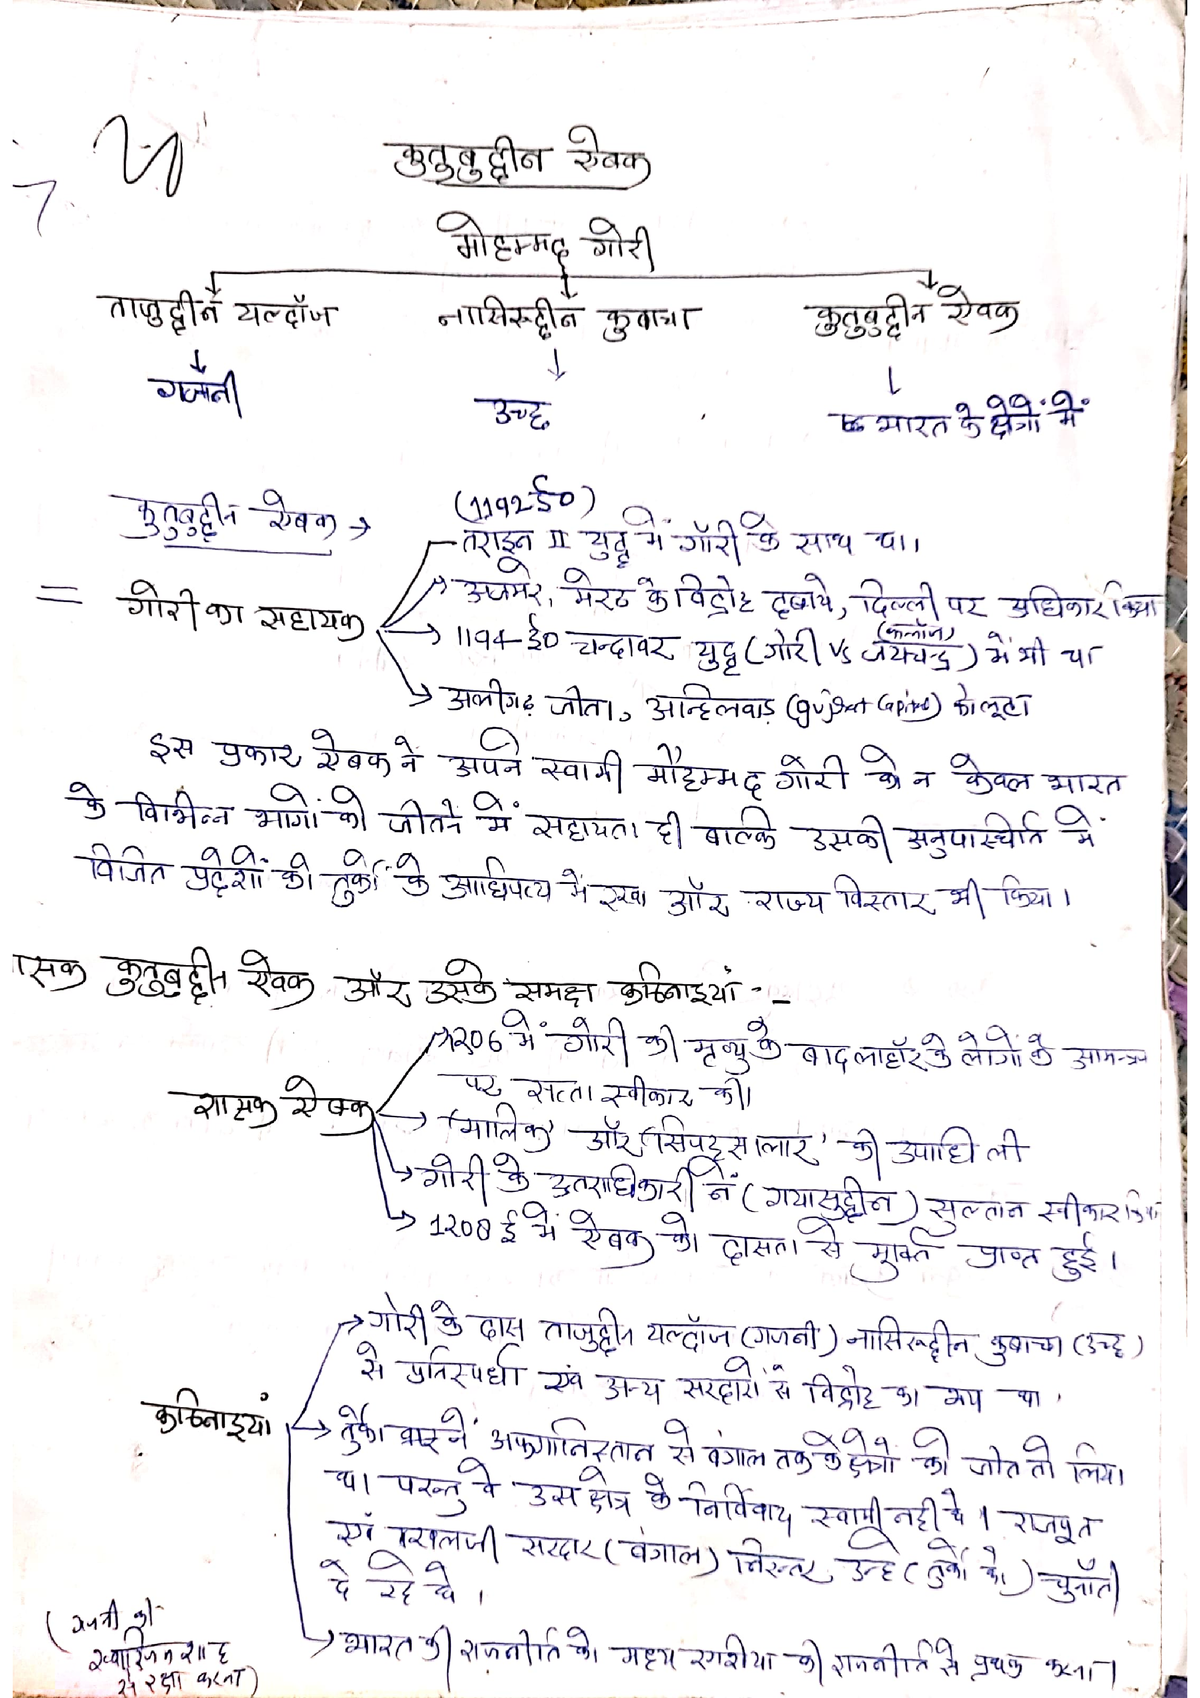 कुतुबुद्दीन ऐबक
मोहम्मद गोरी
ताजुद्दीन यल्दौज नासिरुद्दीन कुबाचा कुतुबुद्दीन ऐबक
गजनी उच्छ भारत के क्षेत्रों में
कुतुबुद्दीन ऐबक → (1192ई०)
तराइन II युद्ध में गौरी के साथ था।
= गोरी का सहायक → अजमेर, मेरठ के विद्रोह दबाये, दिल्ली पर अधिकार किया
→ 1194 ई० चन्दावर युद्ध (गोरी vs जयचन्द्र) में भी था
(कन्नौज)
→ अलीगढ़ जीता, अन्हिलवाड़ (gujrat Capital) को लूटा
इस प्रकार ऐबक ने अपने स्वामी मौहम्मद गौरी को न केवल भारत
के विभिन्न भागों को जीतने में सहायता दी बल्कि उसकी अनुपस्थिति में
विजित प्रदेशों को तुर्कों के आधिपत्य में रखा और राज्य विस्तार भी किया।
ासक कुतुबुद्दीन ऐबक और उसके समक्ष कठिनाइयां :-
→ 1206 में गोरी की मृत्यु के बाद लाहौर के लोगों के आमन्त्रण
पर सत्ता स्वीकार की।
शासक ऐबक → 'मालिक' और 'सिपहसालार' की उपाधि ली
→ गोरी के उतराधिकारी नें (गयासुद्दीन) सुल्तान स्वीकार किया
→ 1208 ई में ऐबक को दासता से मुक्ति प्राप्त हुई।
→ गोरी के दास ताजुद्दीन यल्दौज (गजनी) नासिरुद्दीन कुबाचा (उच्छ)
से प्रतिस्पर्धा एवं अन्य सरदारों से विद्रोह का भय था।
कठिनाइयां → तुर्को ने अफगानिस्तान से बंगाल तक के क्षेत्रों को जीत तो लिया
था परन्तु वे उस क्षेत्र के निर्विवाद स्वामी नहीं थे। राजपूत
एवं खलजी सरदार (बंगाल) निरन्तर उन्हे (तुर्को को) चुनौती
दे रहे थे।
→ भारत की राजनीति को मध्य एशिया की राजनीति से प्रथक करना।
(गजनी को
ख्वारिज्म शाह
से रक्षा करना)